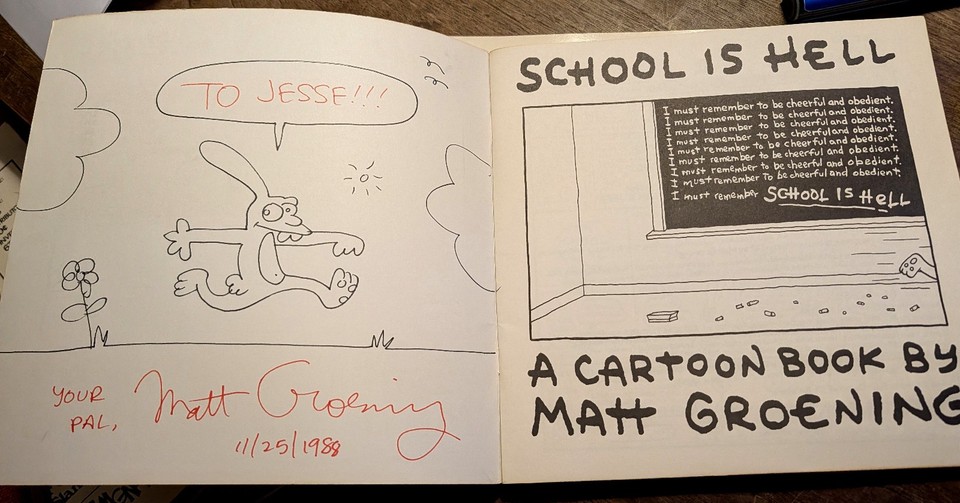 TO JESSE!!!
YOUR
PAL,
Matt Groening
11/25/1988
SCHOOL IS HELL
I must remember to be cheerful and obedient.
I must remember to be cheerful and obedient.
I must remember to be cheerful and obedient.
I must remember to be cheerful and obedient.
I must remember to be cheerful and obedient.
I must remember to be cheerful and obedient.
I must remember to be cheerful and obedient.
I must remember To be cheerful and obedient.
I must remember SCHOOL IS HeLL
A CARTOON BOOK BY
MATT GROENING